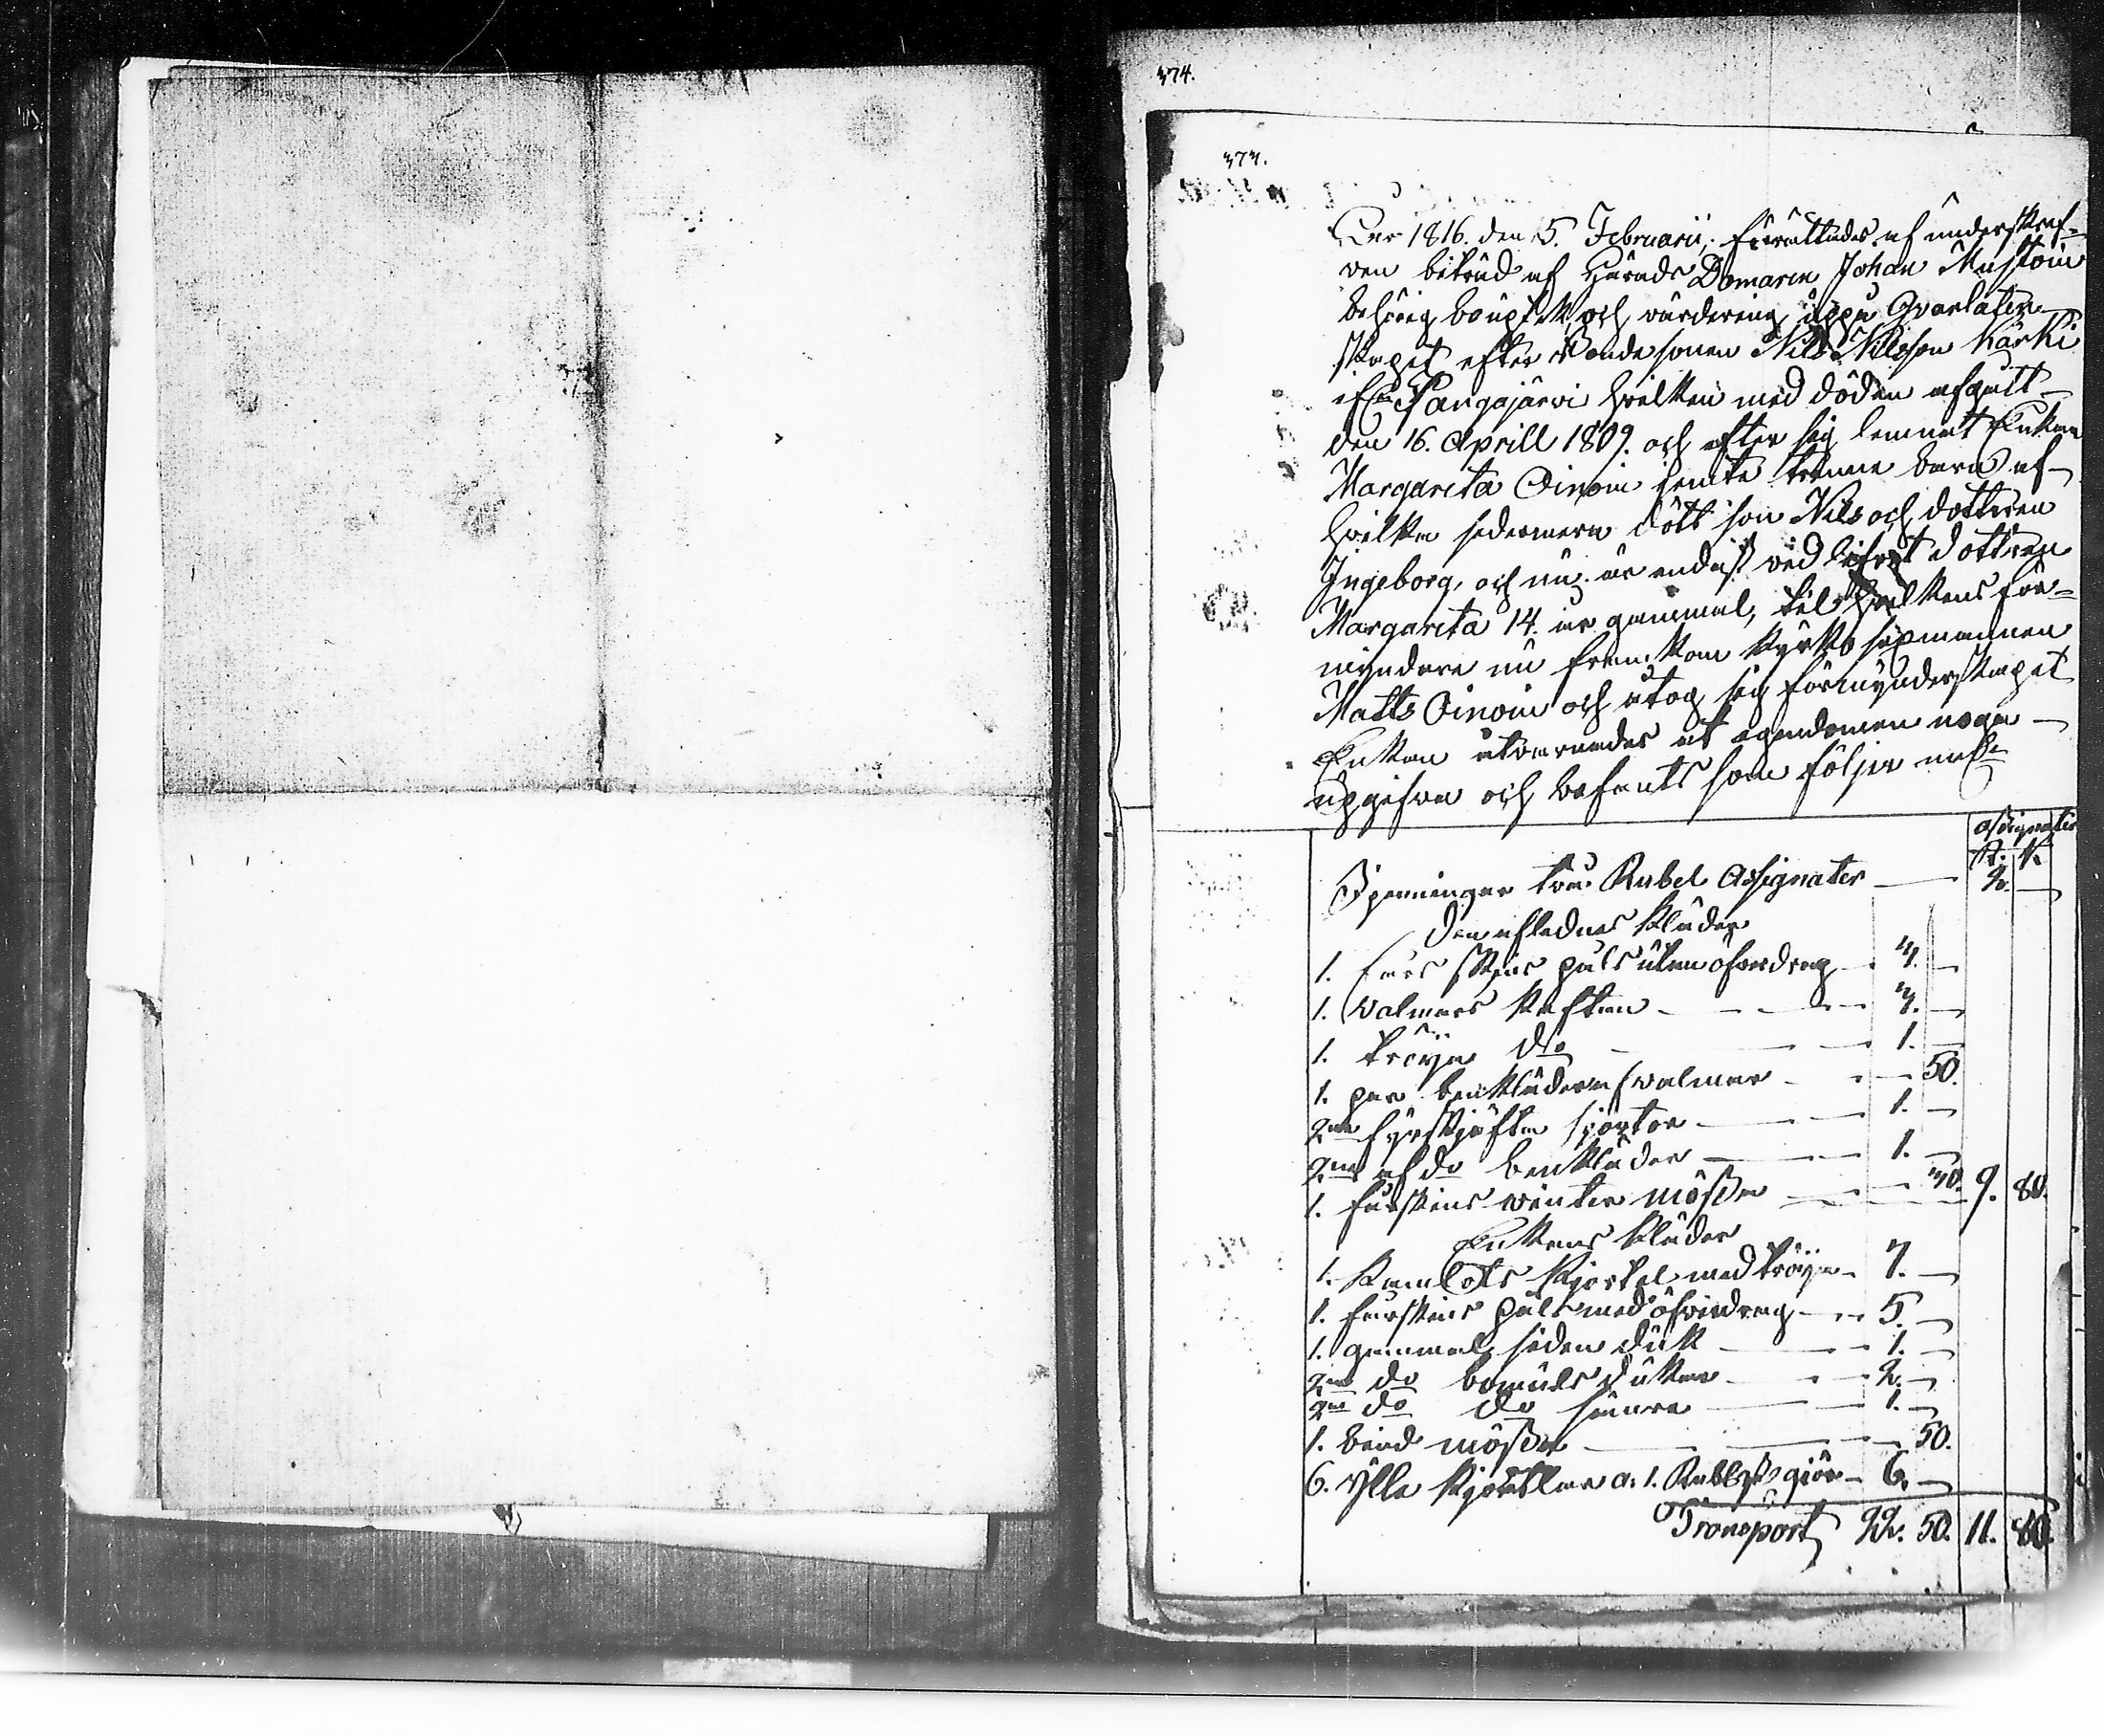 374.
373.
Åhr 1816. den 5. Februarii, förrättades af underskref-
ven biträd af Härads Domaren Johan Mustoin
behörig bouptekn och värdering uppå Qvarlåten-
skapet efter Bondesonen Nils Nilsson Kärki
ifrån Sangajärvi hvilken med döden afgått
den 16. Aprill 1809. och efter sig lemnat Enkan
Margareta Oinoin jemte trenne barn af
hvilka sedermera dött son Nils och dottren
Ingeborg, och nu är endast ved lifvet dottren
Margareta 14. år gammal, till hvilkens för-
myndare nu framkom Kyrko sexmannen
Matts Oinoin och åtog sig förmynderskapet
Enkan åtvarnades at egendomen noga
upgifva och befants som följer
assignater
R. K.
I penningar två Rubel Assignater 2.
Den aflednes kläder
1. fårskins päls utan öfverdrag 3.
1. valmars kaftan 3.
1. tröija do 1.
1. par benkläder af valmar 50.
2ne fyrskjäfta skjortor 1.
2ne af do benkläder 1.
1. fårskins winter mössa 30. 9. 80.
Enkans kläder
1. Kamlots Kjortel med tröija 7.
1. fårskins päls med öfverdrag 5.
1. gammal siden duk 1.
2ne do bomuls dukar 2.
2ne do do sämre 1.
1. bind mössa 50.
6. ylle kjortlar a: 1. Rubl st giör 6.
Transport 22. 50. 11. 80.